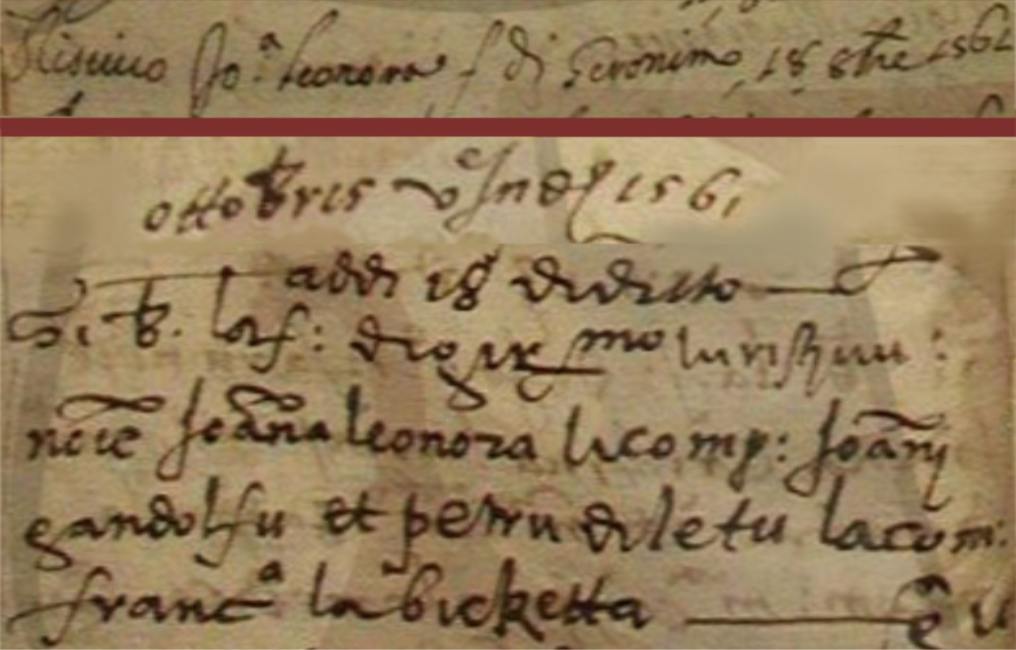 Jo.ª Leonora f di Geronimo, 18 8bre 1561
ottobris v Ind 1561
addi 18 di ditto
S. B. la f: di gir.mo lu risignu:
noīe Joāna leonora li comp: Joāni
gandolfu et petru diletu la com:
franc.ª la bicketta